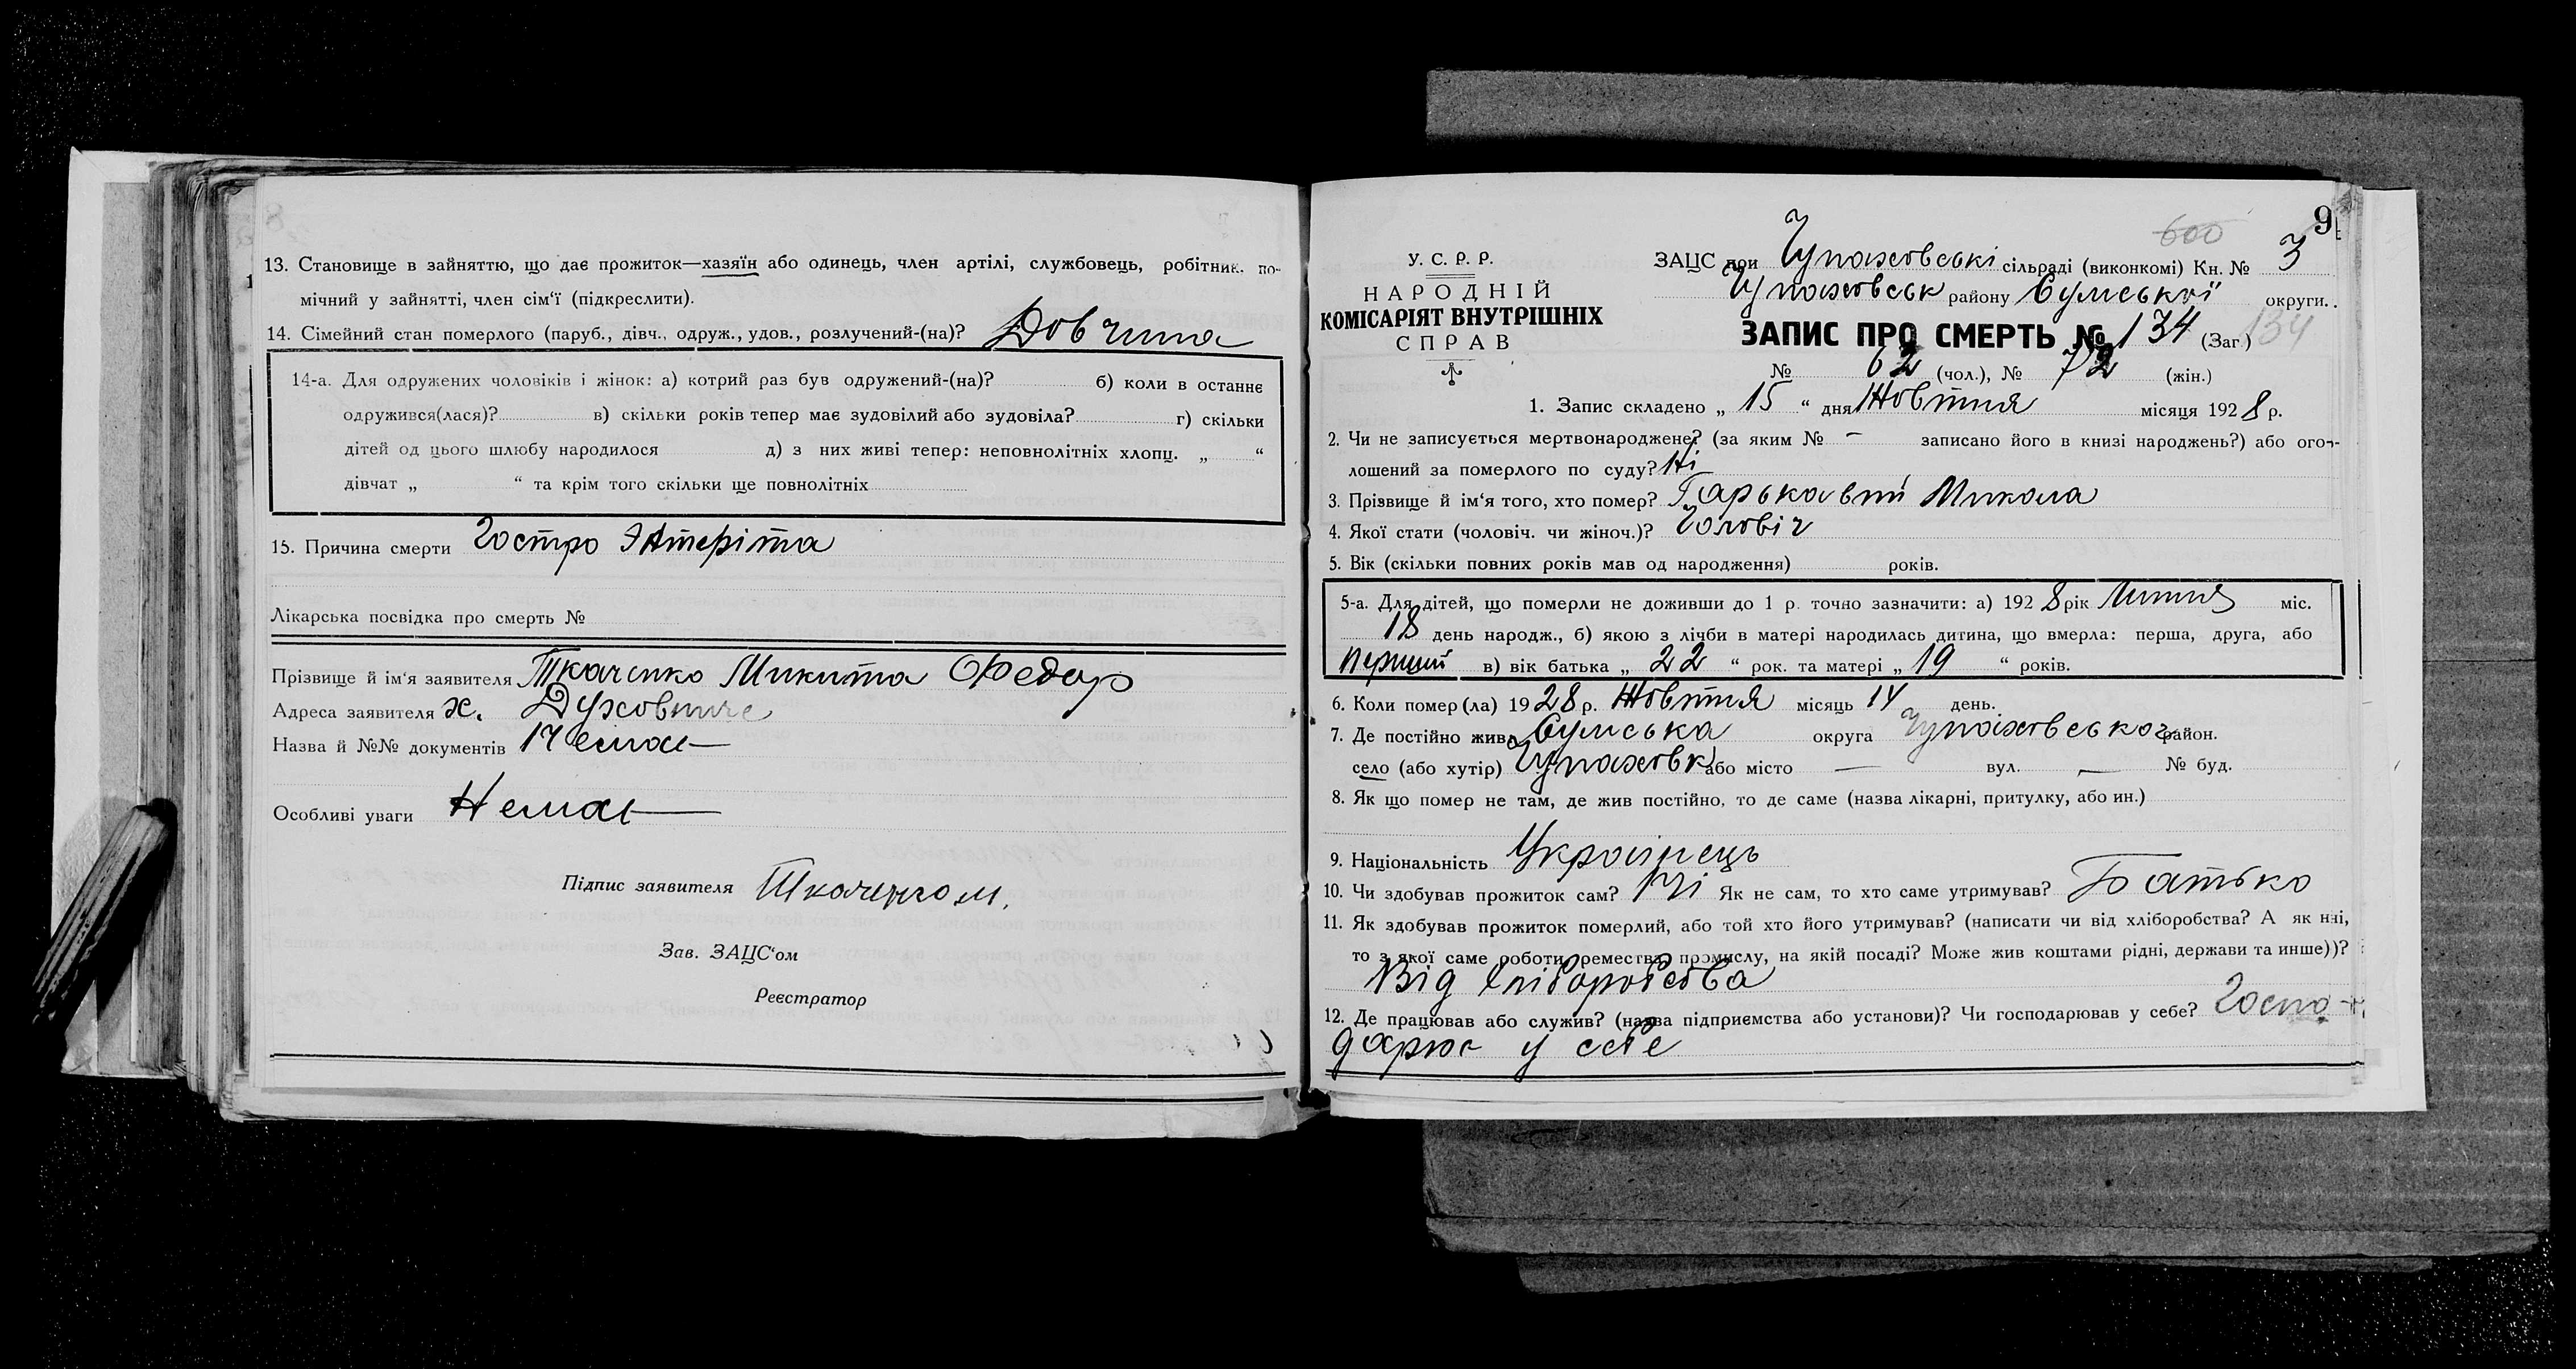 13. Становище в зайняттю, що дає прожиток—хазяїн або одинець, член артілі, службовець, робітник. по-
мічний у зайнятті, член сім'ї (підкреслити).
14. Сімейний стан померлого (паруб., дівч., одруж., удов., розлучений-(на)? Довчина
14-а. Для одружених чоловіків і жінок: а) котрий раз був одружений-(на)? б) коли в останнє
одружився(лася)? в) скільки років тепер має зудовілий або зудовіла? г) скільки
дітей од цього шлюбу народилося д) з них живі тепер: неповнолітніх хлопц. „ “
дівчат „ “ та крім того скільки ще повнолітніх
15. Причина смерти Гостро Энтеріта
Лікарська посвідка про смерть №
Прізвище й ім'я заявителя Ткаченко Микита Федор
Адреса заявителя х.
Назва й №№ документів Немає
Особливі уваги Немає
Підпис заявителя Ткаченко М.
Зав. ЗАЦС'ом
Реєстратор
600
9
У. С. Р. Р.
НАРОДНІЙ
КОМІСАРІЯТ ВНУТРІШНІХ
СПРАВ
ЗАЦС при Чупаховські сільраді (виконкомі) Кн. № 3
Чупаховськ району Сумської округи.
ЗАПИС ПРО СМЕРТЬ № 134 (Заг.) 134
№ 62 (чол.), № 72 (жін.)
1. Запис складено „ 15 “ дня Жовтня місяця 1928 р.
2. Чи не записується мертвонароджене? (за яким № – записано його в книзі народжень?) або ого-
лошений за померлого по суду? Ні
3. Прізвище й ім'я того, хто помер? Гарькавий Микола
4. Якої стати (чоловіч. чи жіноч.)? Чоловіч
5. Вік (скільки повних років мав од народження) років.
5-а. Для дітей, що померли не доживши до 1 р. точно зазначити: а) 1928 рік Липня міс.
18 день народж., б) якою з лічби в матері народилась дитина, що вмерла: перша, друга, або
перший в) вік батька „ 22 “ рок. та матері „ 19 “ років.
6. Коли помер(ла) 1928 р. Жовтня місяць 14 день.
7. Де постійно жив Сумська округа Чупаховського район.
село (або хутір) Чупаховк або місто — вул. — № буд.
8. Як що помер не там, де жив постійно, то де саме (назва лікарні, притулку, або ин.)
9. Національність Українець
10. Чи здобував прожиток сам? Ні Як не сам, то хто саме утримував? Батько
11. Як здобував прожиток померлий, або той хто його утримував? (написати чи від хліборобства? А як ні,
то з якої саме роботи, ремества, промислу, на якій посаді? Може жив коштами рідні, держави та инше))?
Від хліборобсва
12. Де працював або служив? (назва підприємства або установи)? Чи господарював у себе? Госпо-
дарює у себе